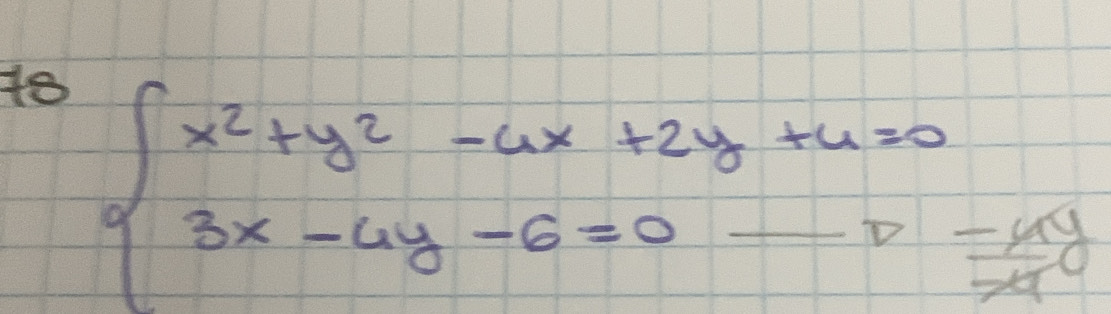 78
x² + y² - 4x + 2y + 4 = 0
3x - 4y - 6 = 0 → -4y/-4